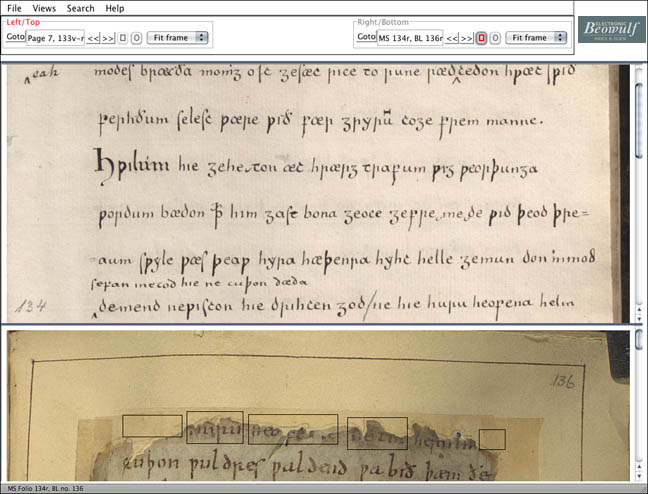 File Views Search Help
Left/Top
Goto Page 7, 133v-r << >> Fit frame
Right/Bottom
Goto MS 134r, BL 136r << >> Fit frame
ELECTRONIC Beowulf INDEX & GUIDE
eah modes bræcða moniʒ oft ʒesæt rice to rune ræd tedon hƿæt sƿið
ferhðum selest ƿære ƿið fær ʒryrū to ʒe frem manne.
Hƿilum hie ʒehe ton æt hrærʒ trafum ƿiʒ ƿeorþunʒa
ƿordum bædon ꝥ him ʒast bona ʒeoce ʒefre me de ƿið þeod þre=
=aum sƿylc ƿæs þeaƿ hyra hæþenra hyht helle ʒemun don in mod
sefan metod hie ne cuþon dæda
134 demend ne ƿiston hie drihten ʒod/ne hie huru heofena helm
136
cuþon ƿuldres ƿaldend ƿa bið þæm ðe
MS Folio 134r, BL no. 136